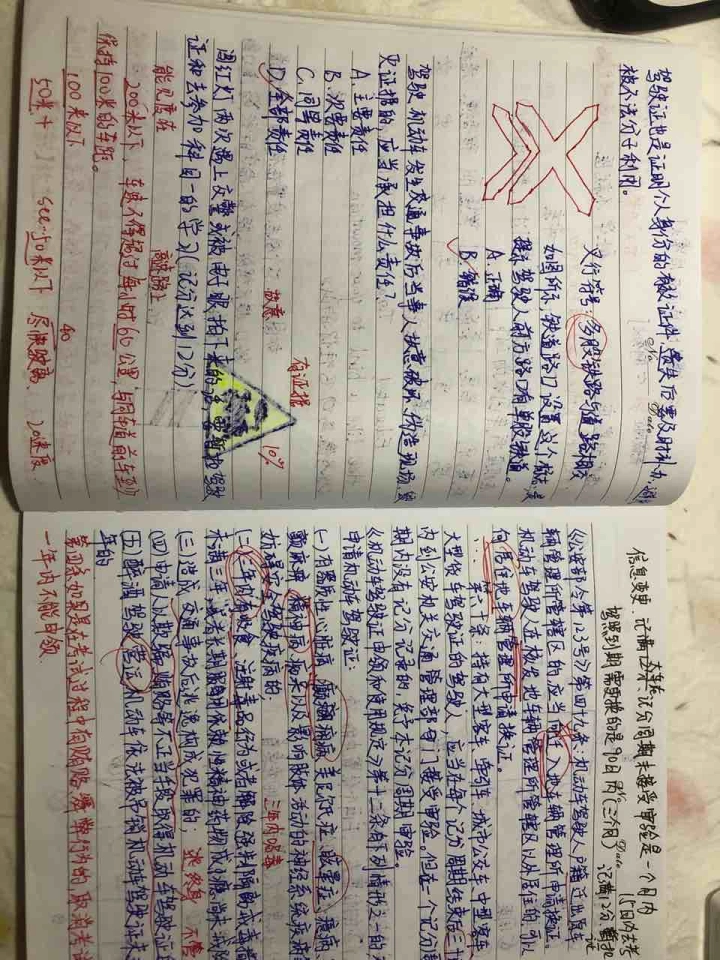 驾驶证也是证明个人身分的有效证件、丢失后要及时补办,
被不法分子利用。
叉行符号:多股铁路与道路相交
如图所示,铁道路口设置这个标志,是
提示驾驶人前方路口有单股铁道。
A.正确
B.错误
驾驶机动车发生交通事故后当事人故意破坏、伪造现场、毁
灭证据的,应当承担什么责任?
A.主要责任
B.次要责任
C.同等责任
D.全部责任
故意
有证据
10%
闯红灯两次遇上交警或被电子眼拍下来的话,
证种去参加科目一的学习(记分达到12分)
能见度在
高速路上
200米以下,车速不得超过每小时60公里,与同车道前车至少
保持100米的车距。
100米以下
40
50米
50米以下 尽快驶离
20速度
信息变更、
记分周期未接受审验是一个月内
15日内去考
驾照到期需要换的是90日内(三个月)
记满12分
《公安部令第123号》第四九条:机动车驾驶人户籍迁出原车
辆管理所管辖区的,应当向迁入地车辆管理所申请换证。
机动车驾驶人在核发地车辆管理所管辖区以外居住的,可以
向居住地车辆管理所申请换证。
第六十条:持有大型客车、牵引车、城市公交车、中型客车、
大型货车驾驶证的驾驶人,应当在每个记分周期结束后三十
内到公安机关交通管理部门接受审验。但在一个记分周
期内没有记分记录的,免予本记分周期审验。
《机动车驾驶证申领和使用规定》第十二条有下列情形之一的,不
申请机动车驾驶证:
(一)有器质性心脏病、癫痫病、美尼尔氏症、眩晕症、癔病、
震颤麻痹、精神病、痴呆以及影响肢体活动的神经系统疾病等
妨碍安全驾驶疾病的;
三年内吸毒
(二)三年内有吸食、注射毒品行为或者解除强制隔离戒毒措
未满三年,或者长期服用依赖性精神药品成瘾尚未戒除
(三)造成交通事故后逃逸构成犯罪的;
终身
(四)申请人以欺骗、贿赂等不正当手段取得机动车驾驶证的
(五)醉酒驾驶营运机动车依法被吊销机动车驾驶证未
年的
第四条如果是在考试过程中有贿赂、舞弊行为的,取消考试
一年内不能申领.